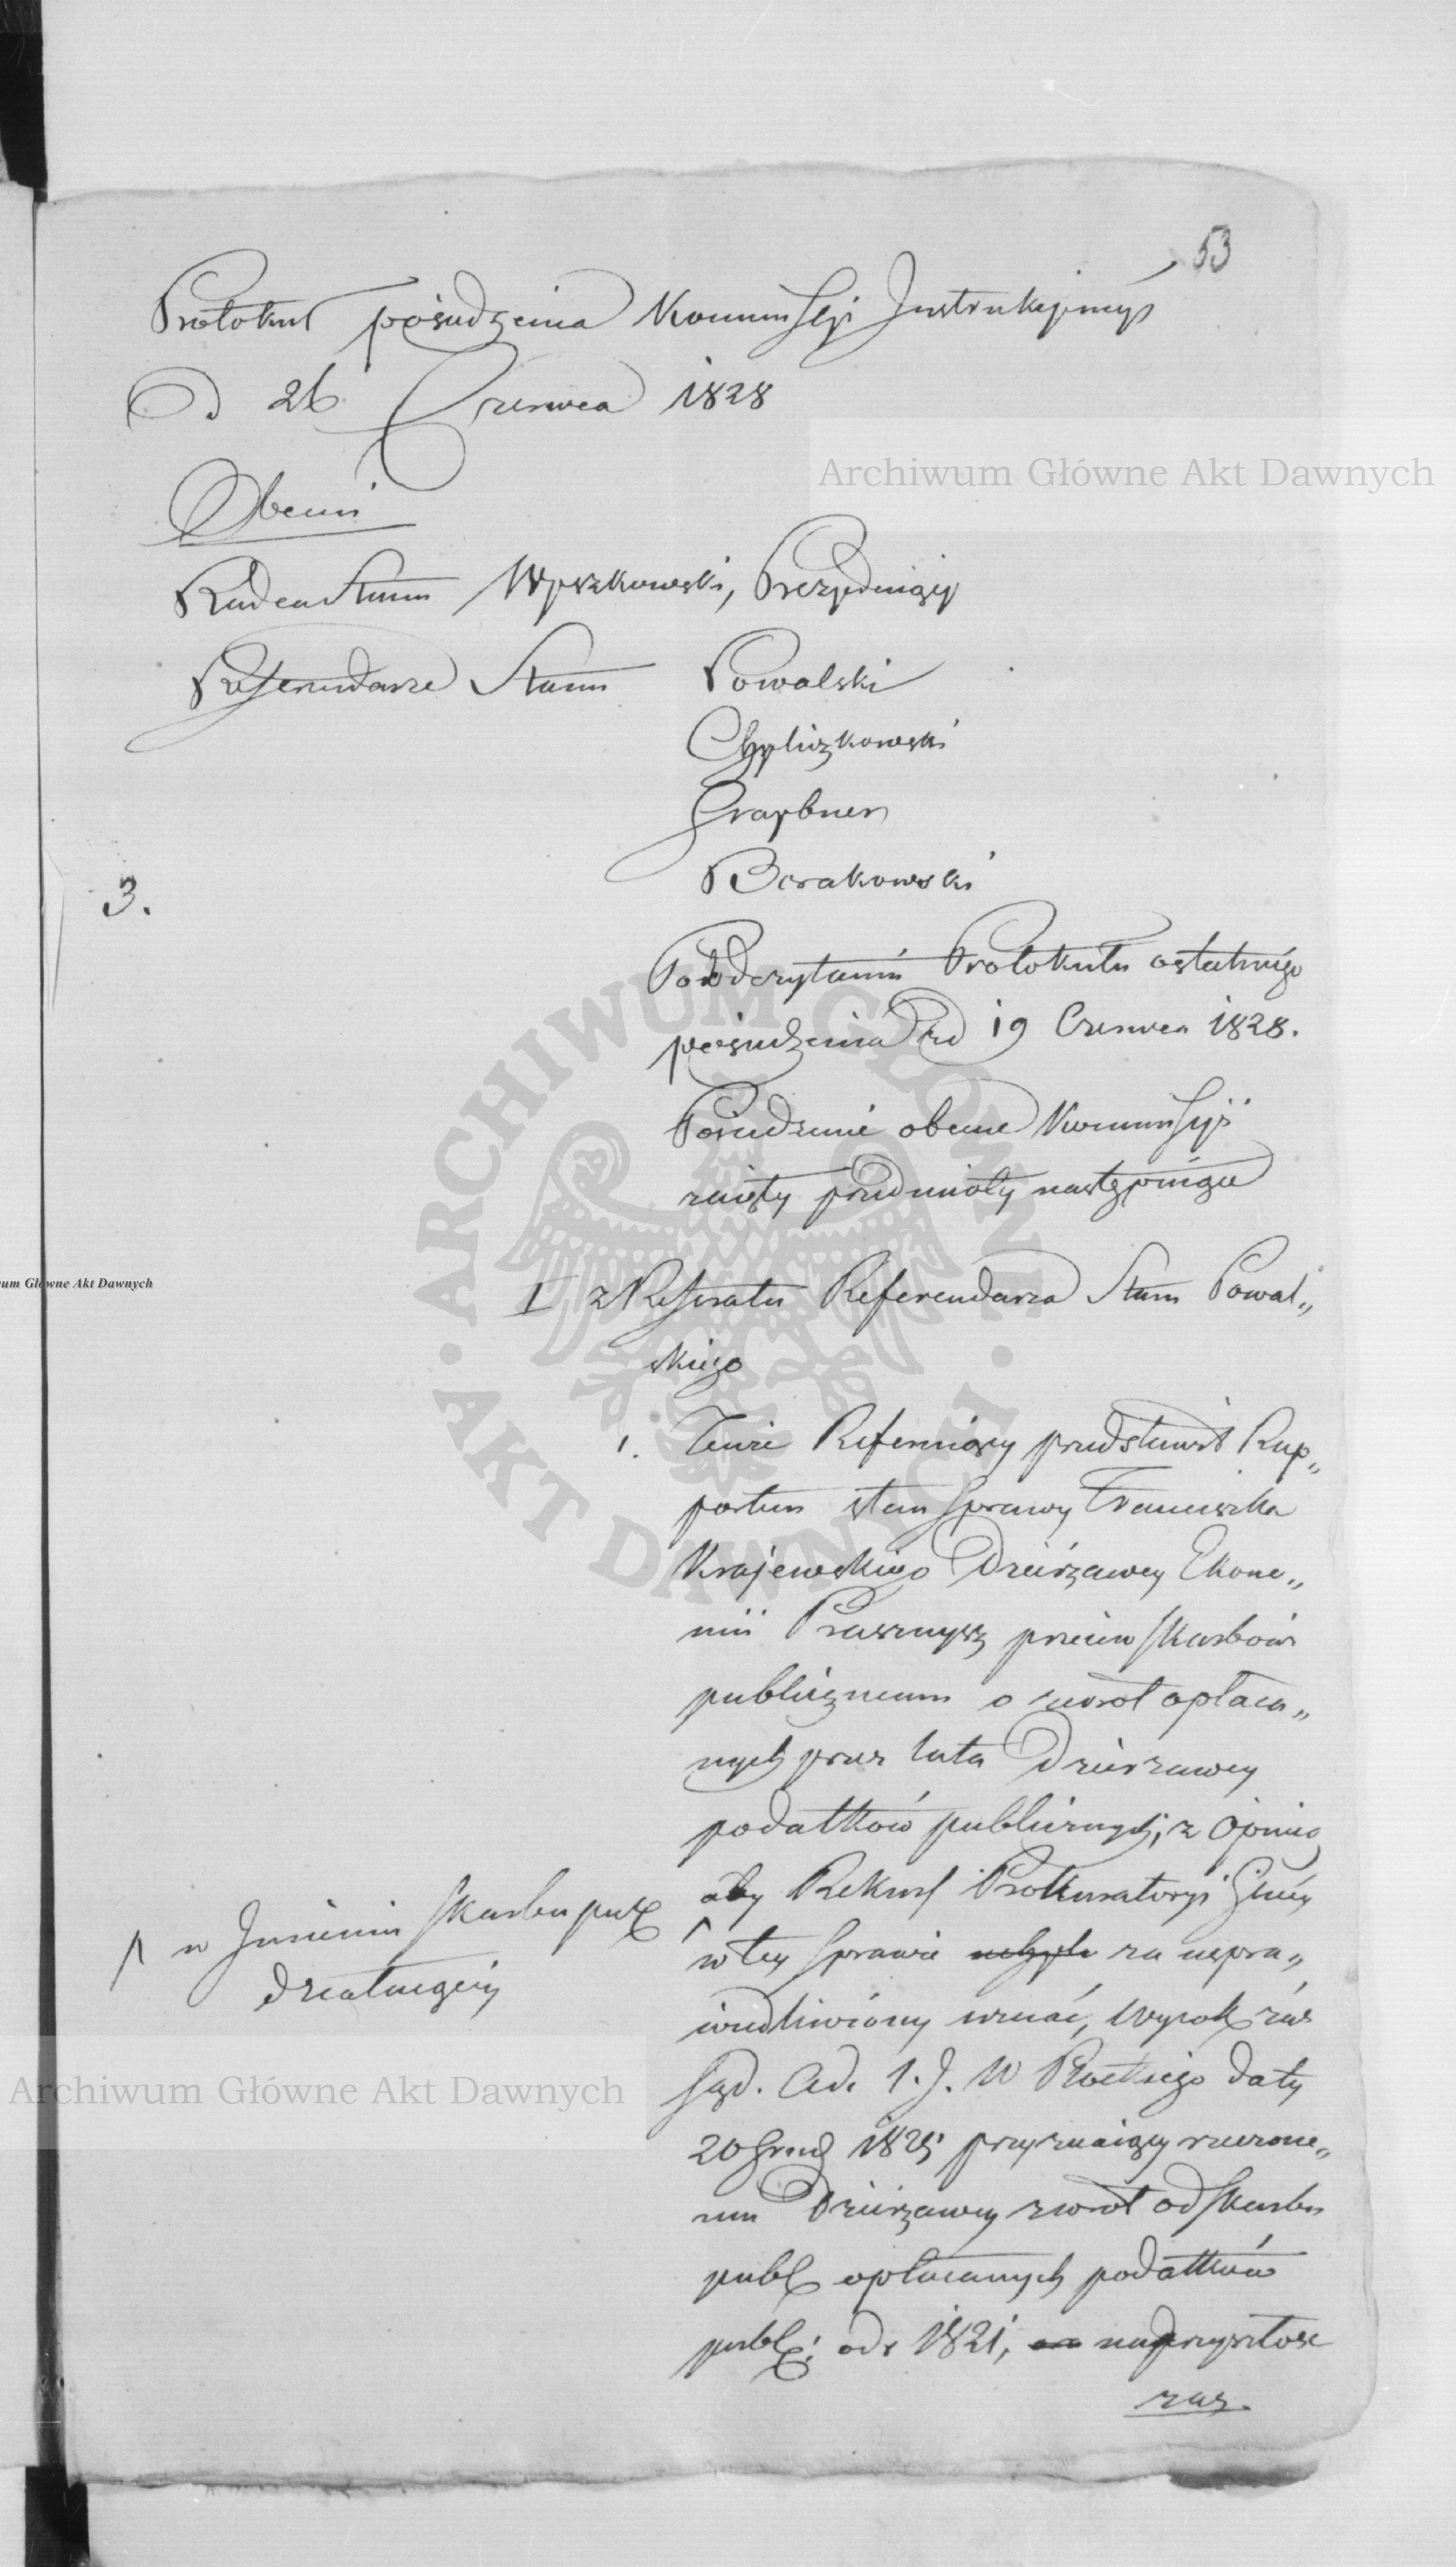 53
Protokuł posiedzenia Kommissyi Instrukcyjnéy
D 26 Czerwca 1828
Obecni
Radca Stanu Wyszkowski, Prezyduiący
Referendarze Stanu Powalski
Chyliczkowski
Graybner
Borakowski
3.
Po odczytaniu Protokułu ostatniégo
posiedzenia d 19 Czerwca 1828.
Posiedzenie obecne Kommissyi
zaięły przedmioty następuiące
I z Referatu Referendarza Stanu Powal„
skiego
1. Tenże Referuiący przedstawił Rap„
portem stan Sprawy Franciszka
Krajewskiego Dzierżawcy Ekono„
mii Przasnysz przeciw Skarbowi
publicznemu o zwrot opłaca„
nych przez lata Dzierżawy
podatków publicznych, z Opinią
aby Rekurs Prokuratoryi Gnéy
/\ w Imieniu Skarbu pub
działaiącéy
w tey Sprawie za uspra„
wiedliwiony uznać, Wyrok zaś
Sąd. Ad. 1. J. W Płockiego daty
20 Grud 1825 przyznaiący rzeczone„
mu Dzierżawcy zwrot od Skarbu
publ opłacanych podatków
publ: od r 1821, na przyszłość
zaś.
Archiwum Główne Akt Dawnych
Archiwum Główne Akt Dawnych
um Główne Akt Dawnych
ARCHIWUM GŁÓWNE · AKT DAWNYCH ·